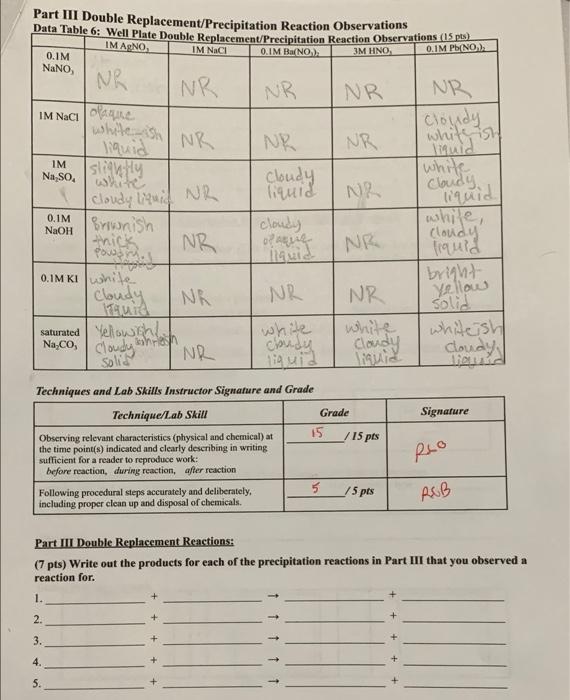 Part III Double Replacement/Precipitation Reaction Observations
Data Table 6: Well Plate Double Replacement/Precipitation Reaction Observations (15 pts)
1M AgNO₃ 1M NaCl 0.1M Ba(NO₃)₂ 3M HNO₃ 0.1M Pb(NO₃)₂
0.1M NaNO₃
NR NR NR NR NR
1M NaCl
opaque white-ish liquid
NR NR NR
cloudy white-ish liquid
1M Na₂SO₄
slightly white cloudy liquid
NR
cloudy liquid
NR
white cloudy liquid
0.1M NaOH
Brownish thick powdery
NR
cloudy opaque liquid
NR
white, cloudy liquid
0.1M KI
white cloudy liquid
NR NR NR
bright yellow solid
saturated Na₂CO₃
Yellowish cloudy solid
NR
white cloudy liquid
white cloudy liquid
whiteish cloudy liquid
Techniques and Lab Skills Instructor Signature and Grade
Technique/Lab Skill Grade Signature
Observing relevant characteristics (physical and chemical) at
the time point(s) indicated and clearly describing in writing
sufficient for a reader to reproduce work:
before reaction, during reaction, after reaction
15 / 15 pts
Following procedural steps accurately and deliberately,
including proper clean up and disposal of chemicals.
5 / 5 pts
Part III Double Replacement Reactions:
(7 pts) Write out the products for each of the precipitation reactions in Part III that you observed a
reaction for.
1. + → +
2. + → +
3. + → +
4. + → +
5. + → +